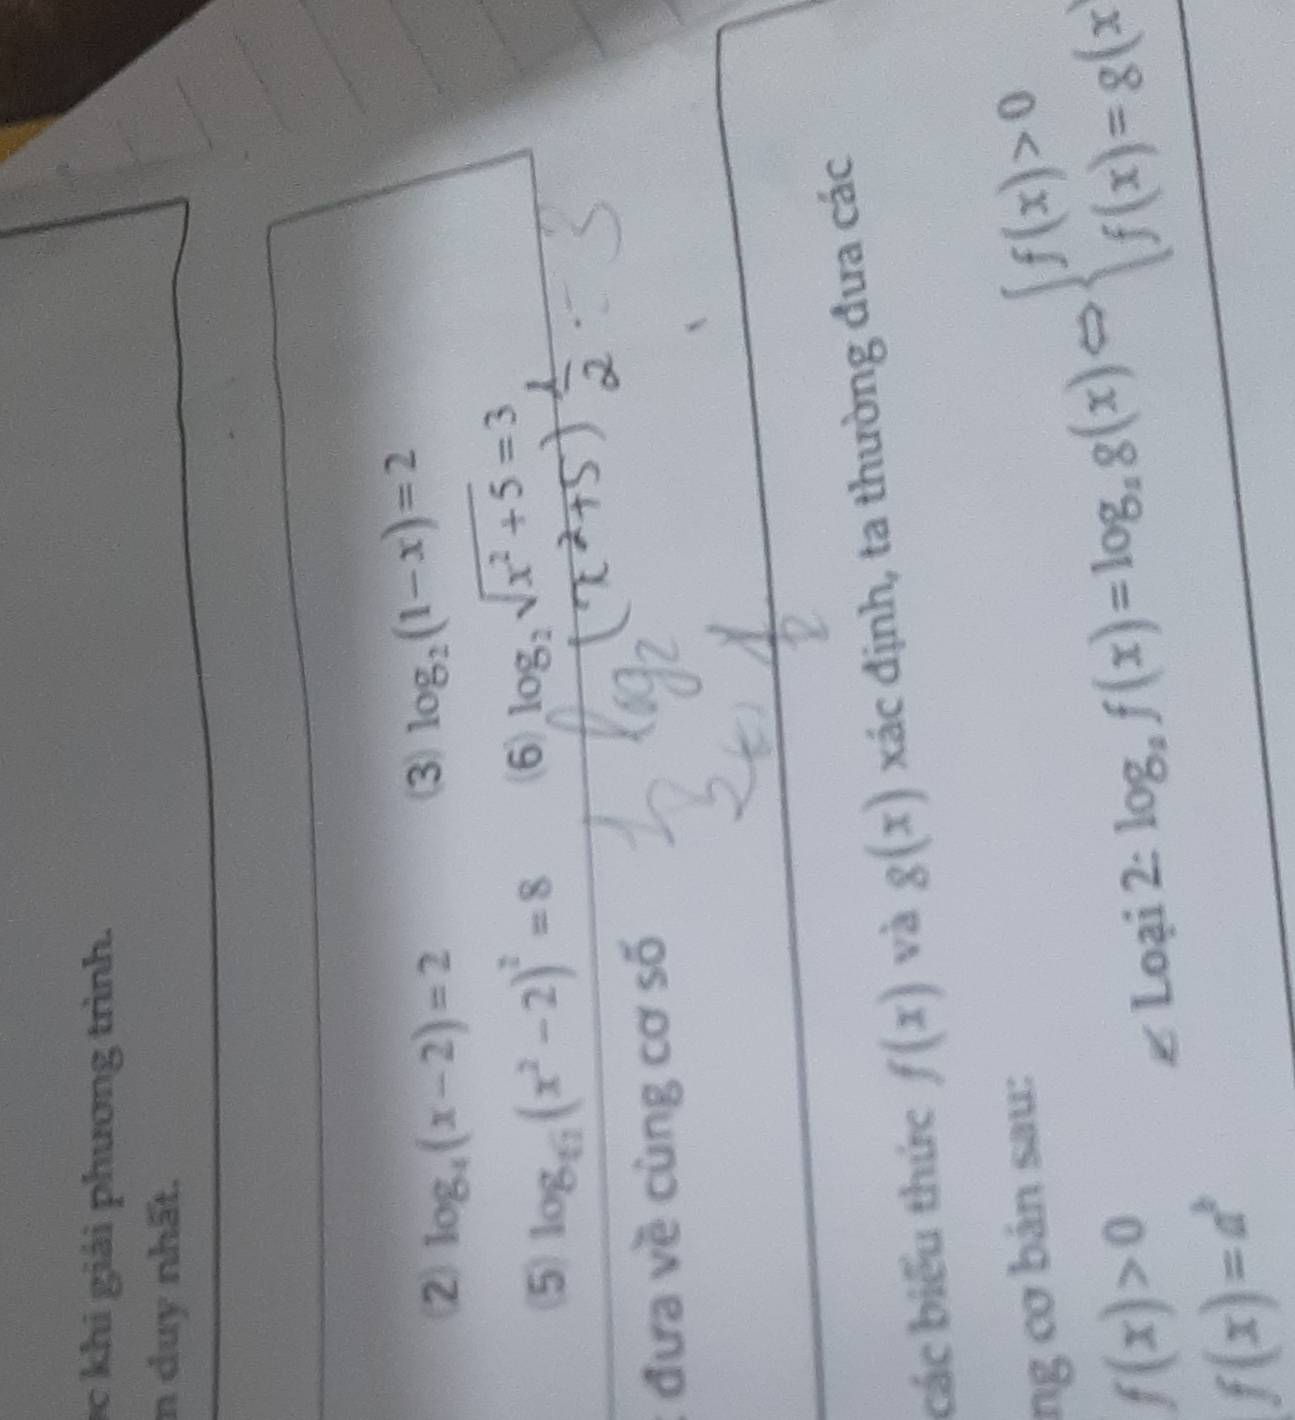 khi giải phương trình.
duy nhất.
(2) log₄(x−2)=2 (3) log₂(1−x)=2
(5) log (x²−2)²=8 (6) log₂√x²+5=3
log₂ (x²+5) 1/2 = 3
đưa về cùng cơ số
1/2
các biểu thức f(x) và g(x) xác định, ta thường đưa các
cơ bản sau:
f(x)>0
f(x)=aᵇ
Loại 2: logₐ f(x)=logₐ g(x) ⇔ { f(x)>0
f(x)=g(x